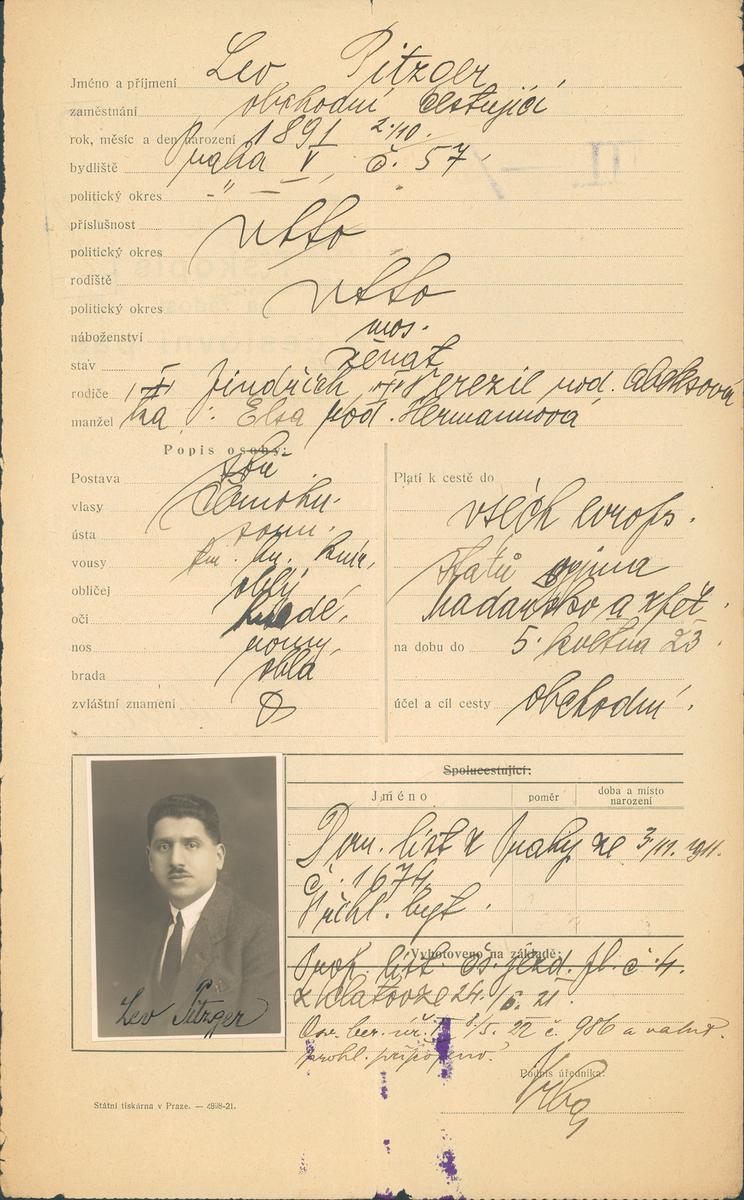 Jméno a příjmení Leo Pitzger
zaměstnání obchodní cestující
rok, měsíc a den narození 1891 2./10.
bydliště Praha V, č. 57
politický okres -"-
příslušnost
politický okres
rodiště
politický okres
náboženství mos.
stav ženat
rodiče Jindřich Terezie rod.
manžel ka: Elsa rod. Hermannová
Popis osoby:
Postava
vlasy černohn.
ústa norm.
vousy
obličej oblý
oči hnědé
nos norm.
brada oblá
zvláštní znamení
Platí k cestě do
všech evrop.
států vyjma
Maďarsko a zpět.
na dobu do 5. května 23
účel a cíl cesty obchodní.
Spolucestující:
Jméno poměr doba a místo narození
Dom. list z Prahy ze 3/11. 1911.
č. 1674
byt.
Vyhotoveno na základě:
list. čs. jízd. pl. č. 4.
z Klatov ze 24./6. 21.
Osv. ber. úř. 8/5. 22 č. 986 a
prohl. připojeno.
Podpis úředníka:
Leo Pitzger
Státní tiskárna v Praze. — 4898-21.